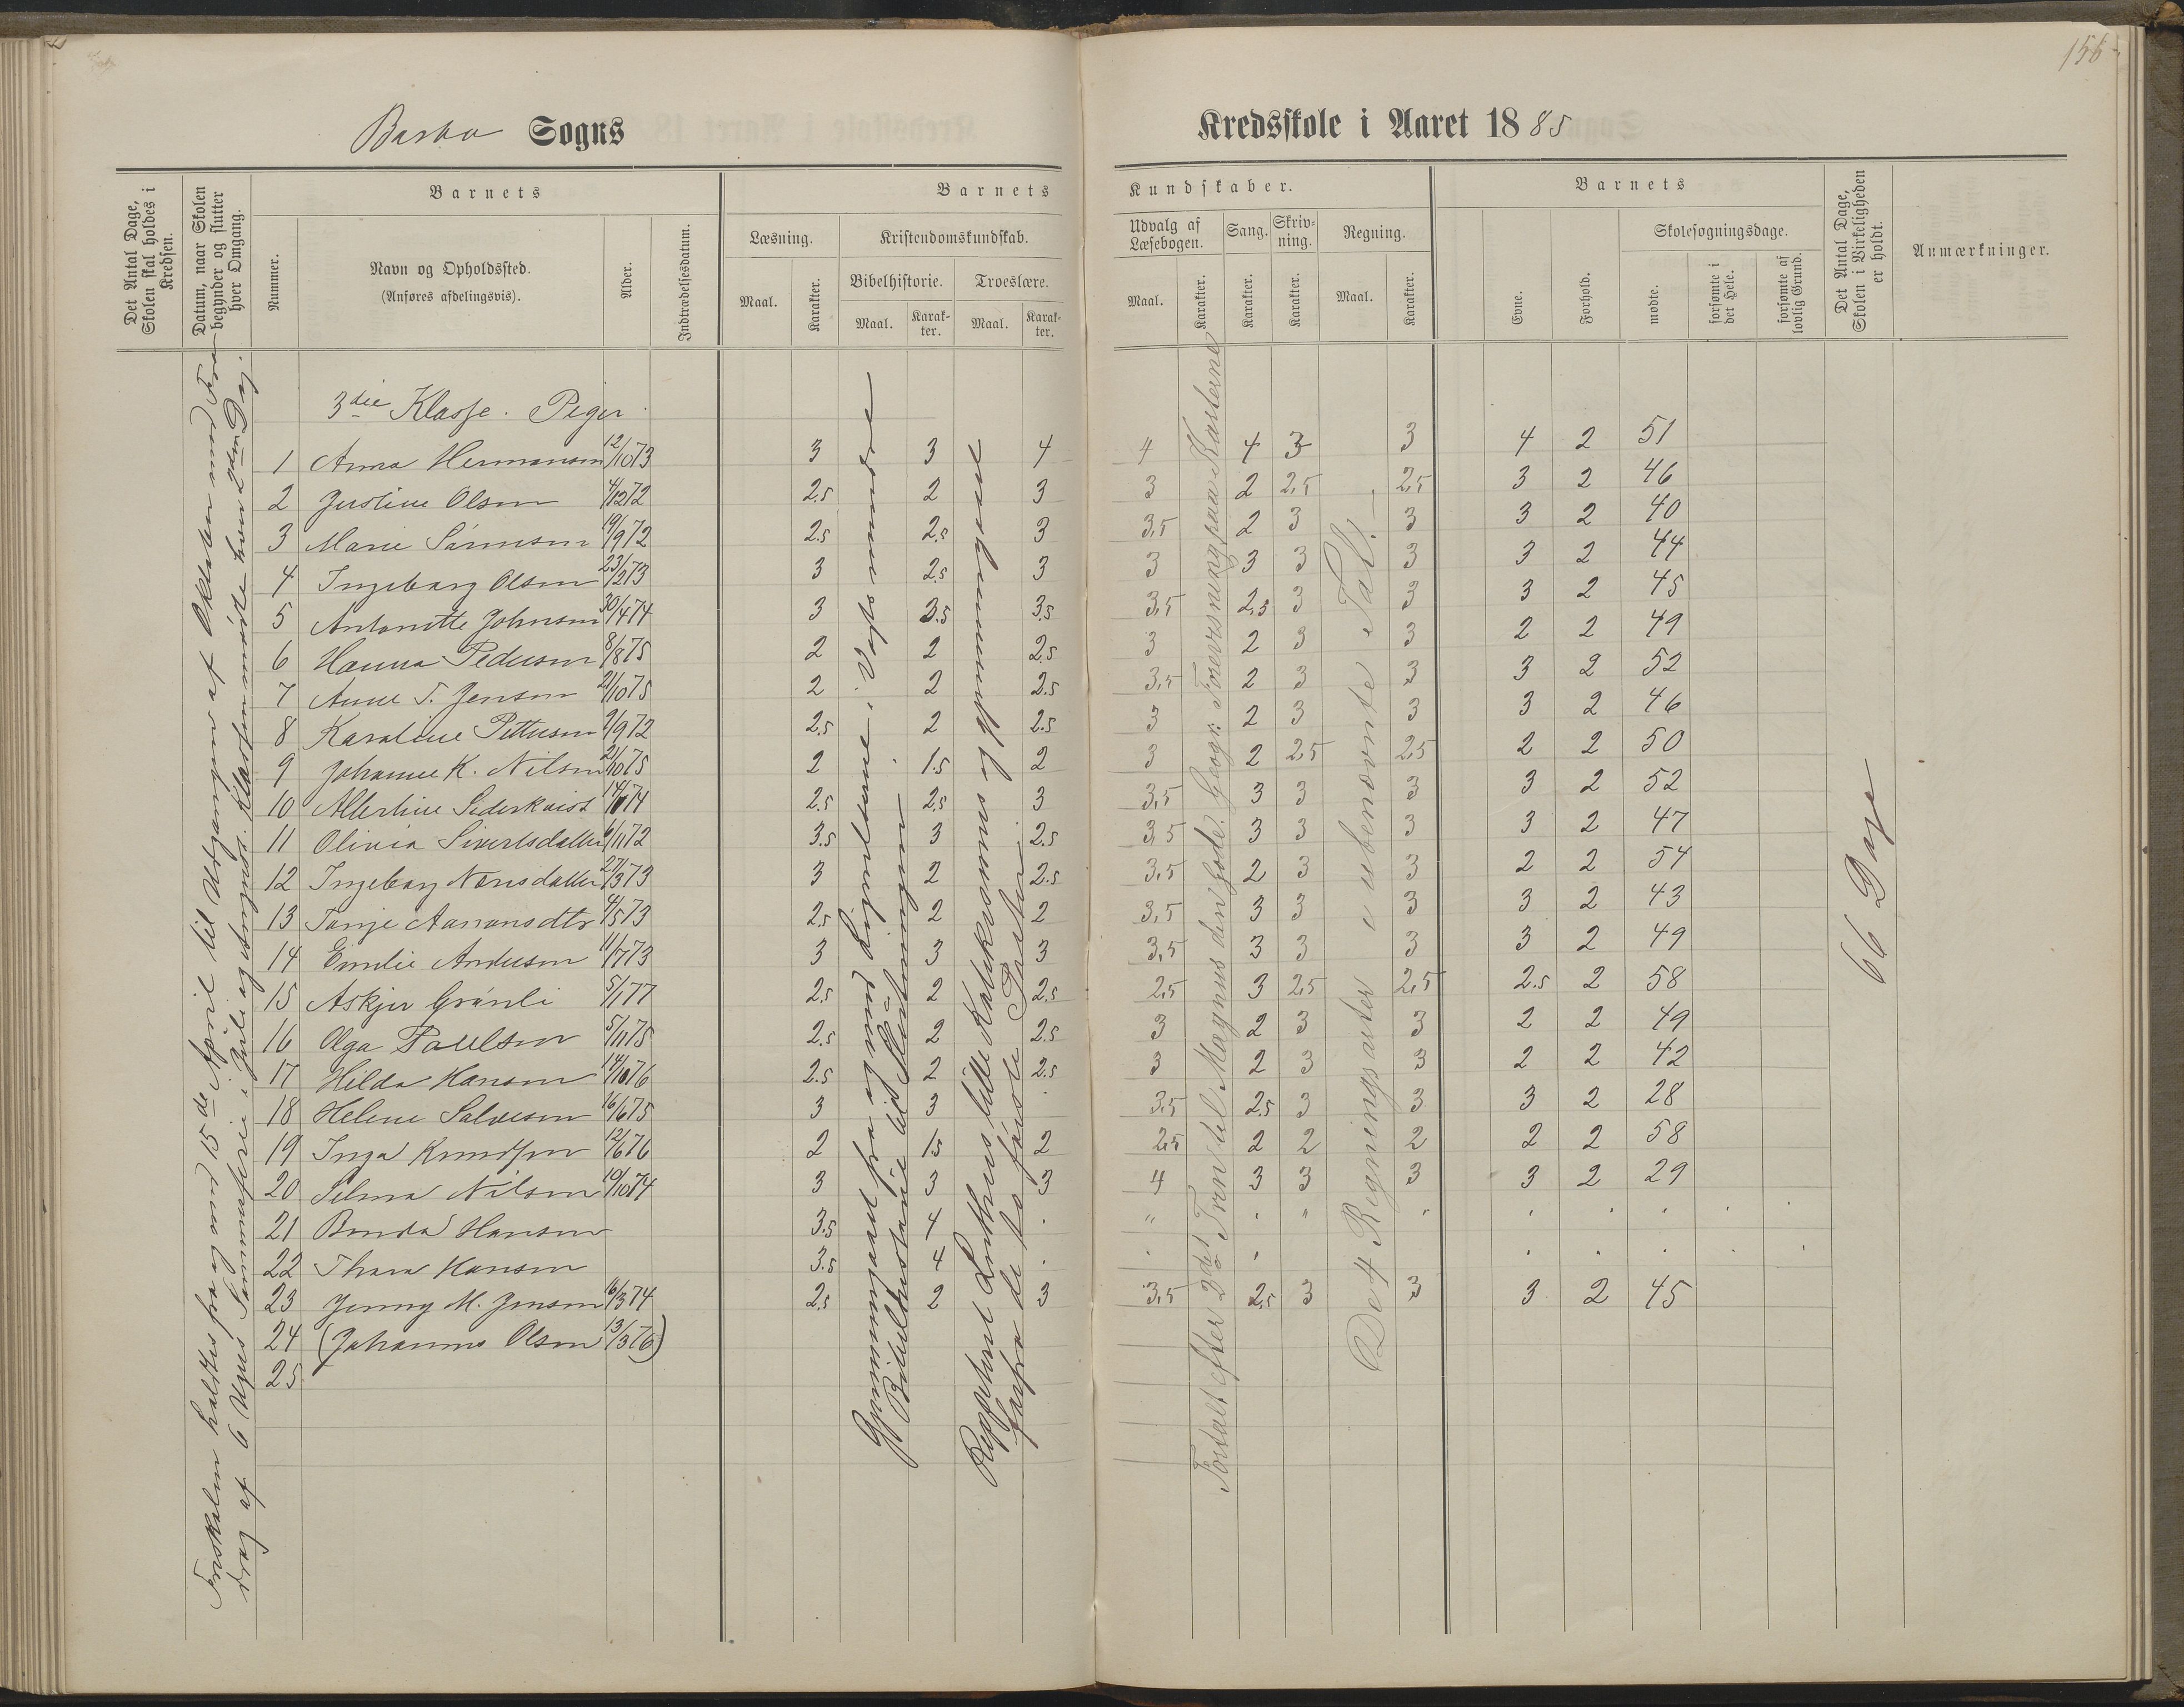 155
Barbo Sogns
Kredsskole i Aaret 1885
Det Antal Dage, Skolen skal holdes i Kredsen.
Datum, naar Skolen begynder og slutter hver Omgang.
Nummer.
Barnets
Navn og Opholdssted.
(Anføres afdelingsvis).
Alder.
Indtrædelsesdatum.
Barnets
Kundskaber.
Læsning.
Maal.
Karakter.
Kristendomskundskab.
Bibelhistorie.
Maal.
Karakter.
Troeslære.
Maal.
Karakter.
Udvalg af Læsebogen.
Maal.
Karakter.
Sang.
Karakter.
Skrivning.
Karakter.
Regning.
Maal.
Karakter.
Barnets
Evne.
Forhold.
Skolesøgningsdage.
mødte.
forsømte i det Hele.
forsømte af lovlig Grund.
Det Antal Dage, Skolen i Virkeligheden er holdt.
Anmærkninger.
3die Klasse. Piger.
1 Anna Hermansen 12/10 73 3 3 4 4 4 3 3 4 2 51
2 Justine Olsen 4/12 72 2.5 2 3 3 2 2,5 2,5 3 2 46
3 Marie Sørensen 19/9 72 2.5 2.5 3 3,5 2 3 3 3 2 40
4 Ingeborg Olsen 23/2 73 3 2.5 3 3 3 3 3 3 2 44
5 Antonette Johnsen 30/4 74 3 3.5 3.5 3,5 2,5 3 3 3 2 45
6 Hanna Pedersen 8/8 75 2 2 2.5 3 2 3 3 2 2 49
7 Anne T. Jensen 21/10 75 2 2 2.5 3,5 2 3 3 3 2 52
8 Karoline Pettersen 9/9 72 2.5 2 2.5 3 2 3 3 3 2 46
9 Johanne K. Nilsen 21/10 75 2 1.5 2 3 2 2,5 2,5 2 2 50
10 Albertine Sederkvist 2.5 2.5 3 3,5 3 3 3 3 2 52
11 Olivia Sivertsdatter 6/11 72 3.5 3 2.5 3,5 3 3 3 3 2 47
12 Ingeborg Nærisdatter 27/3 73 3 2 2.5 3,5 2 3 3 2 2 54
13 Tonje Aanonsdtr 4/5 73 2.5 2 2 3,5 3 3 3 3 2 43
14 Emilie Andersen 11/7 73 3 3 3 3,5 3 3 3 3 2 49
15 Askjer Grønli 5/1 77 2.5 2 2.5 2,5 3 2,5 2,5 2.5 2 58
16 Olga Paulsen 5/11 75 2.5 2 2.5 3 2 3 3 2 2 49
17 Hilda Hansen 14/10 76 2.5 2 2.5 3 2 3 3 2 2 42
18 Helene Salvesen 16/6 75 3 3 3,5 2,5 3 3 3 2 28
19 Inga Knudsen 12/6 76 2 1.5 2 2,5 2 2 2 2 2 58
20 Selma Nilsen 19/10 74 3 3 3 4 3 3 3 3 2 29
21 Hansen 3.5 4
22 Thora Hansen 3.5 4
23 Jenny M. Jensen 6/3 74 2.5 2 3 3,5 2,5 3 3 3 2 45
24 (Johanne Olsen 13/3 76)
25
Friskolen holdtes fra og med 15de April til Udgangen af Oktober med Fra-
drag af 6 Ugers Sommerferie i Juli og August. Klassen mødte hver 2den Dag.
Gjennemgaaet fra og med Lignelserne i Vesper
Bibelhistorie til Slutningen.
Repeteret Luthers lille Katekismus og
forfra de to første Parter.
Fortalt efter 2det Trin til Magnus den Gode. Geogr. Foervsning paa Karterne
De 4 Regningsarter i ubenævnte Tall.
66 Dage